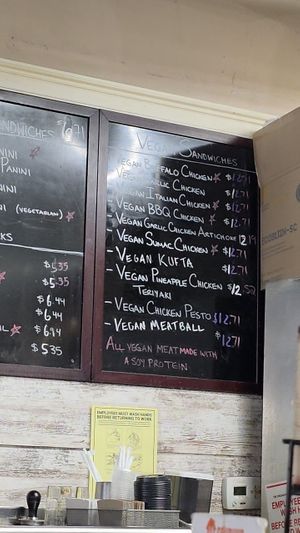 SANDWICHES $6.71
PANINI
PANINI
PANINI
PANINI
PANINI (VEGETARIAN)
$5.35
$5.35
$6.44
$6.44
$6.44
$5.35
VEGAN SANDWICHES
- VEGAN BUFFALO CHICKEN $12.71
- VEGAN GARLIC CHICKEN $12.71
- VEGAN ITALIAN CHICKEN $12.71
- VEGAN BBQ CHICKEN $12.71
- VEGAN GARLIC CHICKEN ARTICHOKE
- VEGAN SUMAC CHICKEN $12.71
- VEGAN KUFTA $12.71
- VEGAN PINEAPPLE CHICKEN
TERIYAKI
- VEGAN CHICKEN PESTO $12.71
- VEGAN MEATBALL $12.71
ALL VEGAN MEAT MADE WITH
A SOY PROTEIN
EMPLOYEES MUST WASH HANDS
BEFORE RETURNING TO WORK
EMPLOYEES